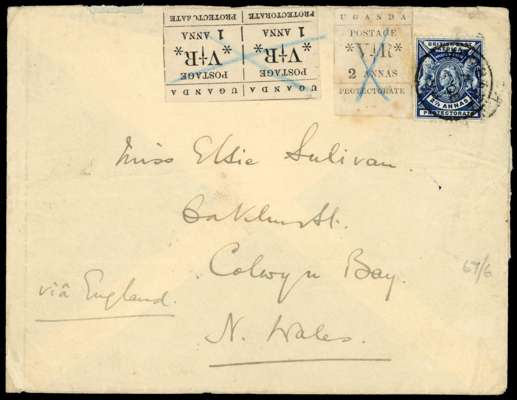 UGANDA UGANDA
POSTAGE POSTAGE
*V R* *V R*
1 ANNA 1 ANNA
PROTECTORATE PROTECTORATE
UGANDA
POSTAGE
*V R*
2 ANNAS
PROTECTORATE
2½ ANNAS
PROTECTORATE
Miss Elsie Sulivan.
Oakhurst.
Colwyn Bay.
67/6
via England.
N. Wales.